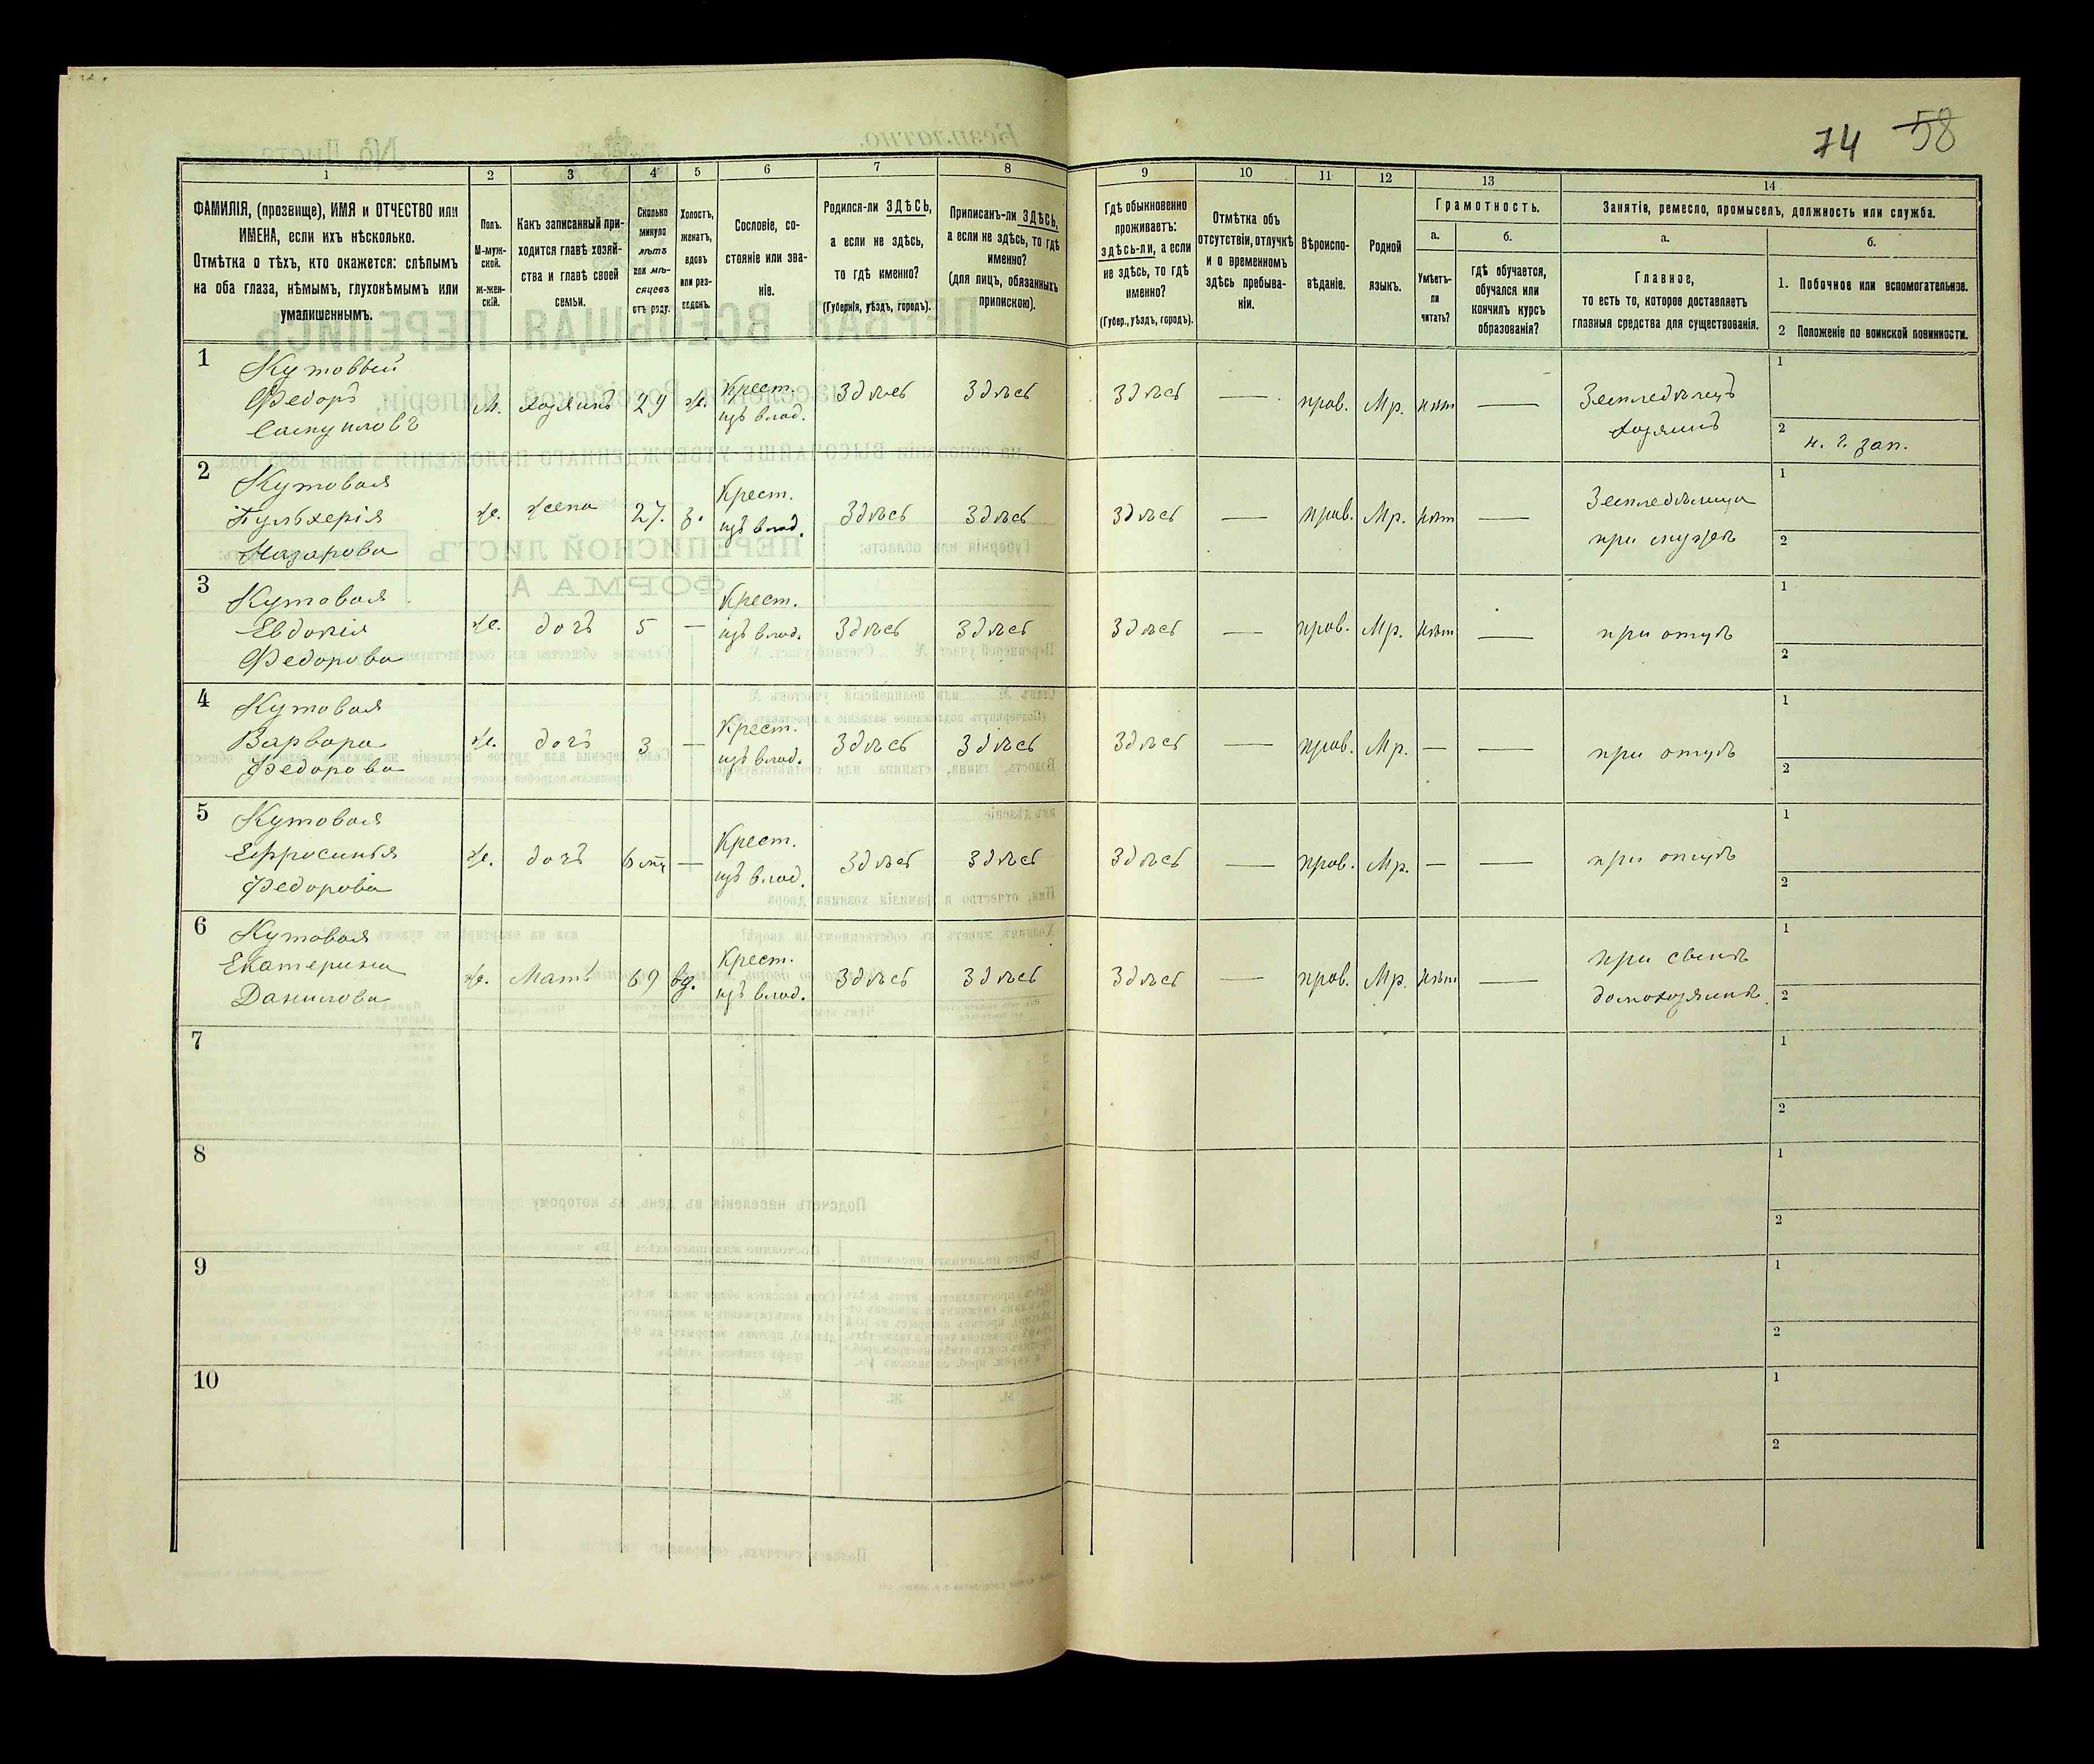 74 58
1 2 3 4 5 6 7 8 9 10 11 12 13 14
ФАМИЛІЯ, (прозвище), ИМЯ и ОТЧЕСТВО или
ИМЕНА, если ихъ нѣсколько.
Отмѣтка о тѣхъ, кто окажется: слѣпымъ
на оба глаза, нѣмымъ, глухонѣмымъ или
умалишеннымъ.
Полъ.
М-муж-
ской.
ж-жен-
скій.
Какъ записанный при-
ходится главѣ хозяй-
ства и главѣ своей
семьи.
Сколько
минуло
лѣтъ
или мѣ-
сяцевъ
отъ роду.
Холостъ,
женатъ,
вдовъ
или раз-
веденъ.
Сословіе, со-
стояніе или зва-
ніе.
Родился-ли ЗДѢСЬ,
а если не здѣсь,
то гдѣ именно?
(Губернія, уѣздъ, городъ).
Приписанъ-ли ЗДѢСЬ,
а если не здѣсь, то гдѣ
именно?
(для лицъ, обязанныхъ
припискою).
Гдѣ обыкновенно
проживаетъ:
здѣсь-ли, а если
не здѣсь, то гдѣ
именно?
(Губер., уѣздъ, городъ).
Отмѣтка объ
отсутствіи, отлучкѣ
и о временномъ
здѣсь пребыва-
ніи.
Вѣроиспо-
вѣданіе.
Родной
языкъ.
Грамотность.
а.
Умѣетъ-
ли
читать?
б.
гдѣ обучается,
обучался или
кончилъ курсъ
образованія?
Занятіе, ремесло, промыселъ, должность или служба.
а.
Главное,
то есть то, которое доставляетъ
главныя средства для существованія.
б.
1. Побочное или вспомогательное.
2 Положеніе по воинской повинности.
1 Кутовый
Федоръ
М. хозяинъ 29 ж. Крест.
изъ влад. здѣсь здѣсь здѣсь — прав. Мр. нѣт — Земледѣлецъ
хозяинъ
1
2 н. г. зап.
2 Кутовая
Пульхерія
Назарова
ж. жена 27. з. Крест.
изъ влад. здѣсь здѣсь здѣсь — прав. Мр. нѣт —
при мужѣ
1
2
3 Кутовая
Евдокія
Федорова
ж. дочь 5 — Крест.
изъ влад. здѣсь здѣсь здѣсь — прав. Мр. нѣт — при отцѣ
1
2
4 Кутовая
Варвара
Федорова
ж. дочь 3 — Крест.
изъ влад. здѣсь здѣсь здѣсь — прав. Мр. — — при отцѣ
1
2
5 Кутовая
Ефросинья
Федорова
ж. дочь 6 — Крест.
изъ влад. здѣсь здѣсь здѣсь — прав. Мр. — — при отцѣ
1
2
6 Кутовая
Екатерина
Данилова
ж. Мать 69 вд. Крест.
изъ влад. здѣсь здѣсь здѣсь — прав. Мр. нѣт — при сынѣ
домохозяинѣ.
1
2
7
1
2
8
1
2
9
1
2
10
1
2